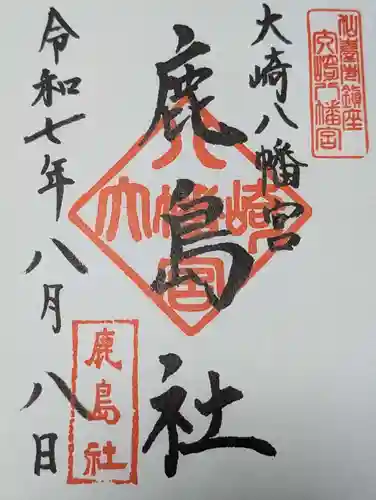 仙臺鎮座
大崎八幡宮
大崎八幡宮
鹿島社
大崎八幡宮
鹿島社
令和七年八月八日